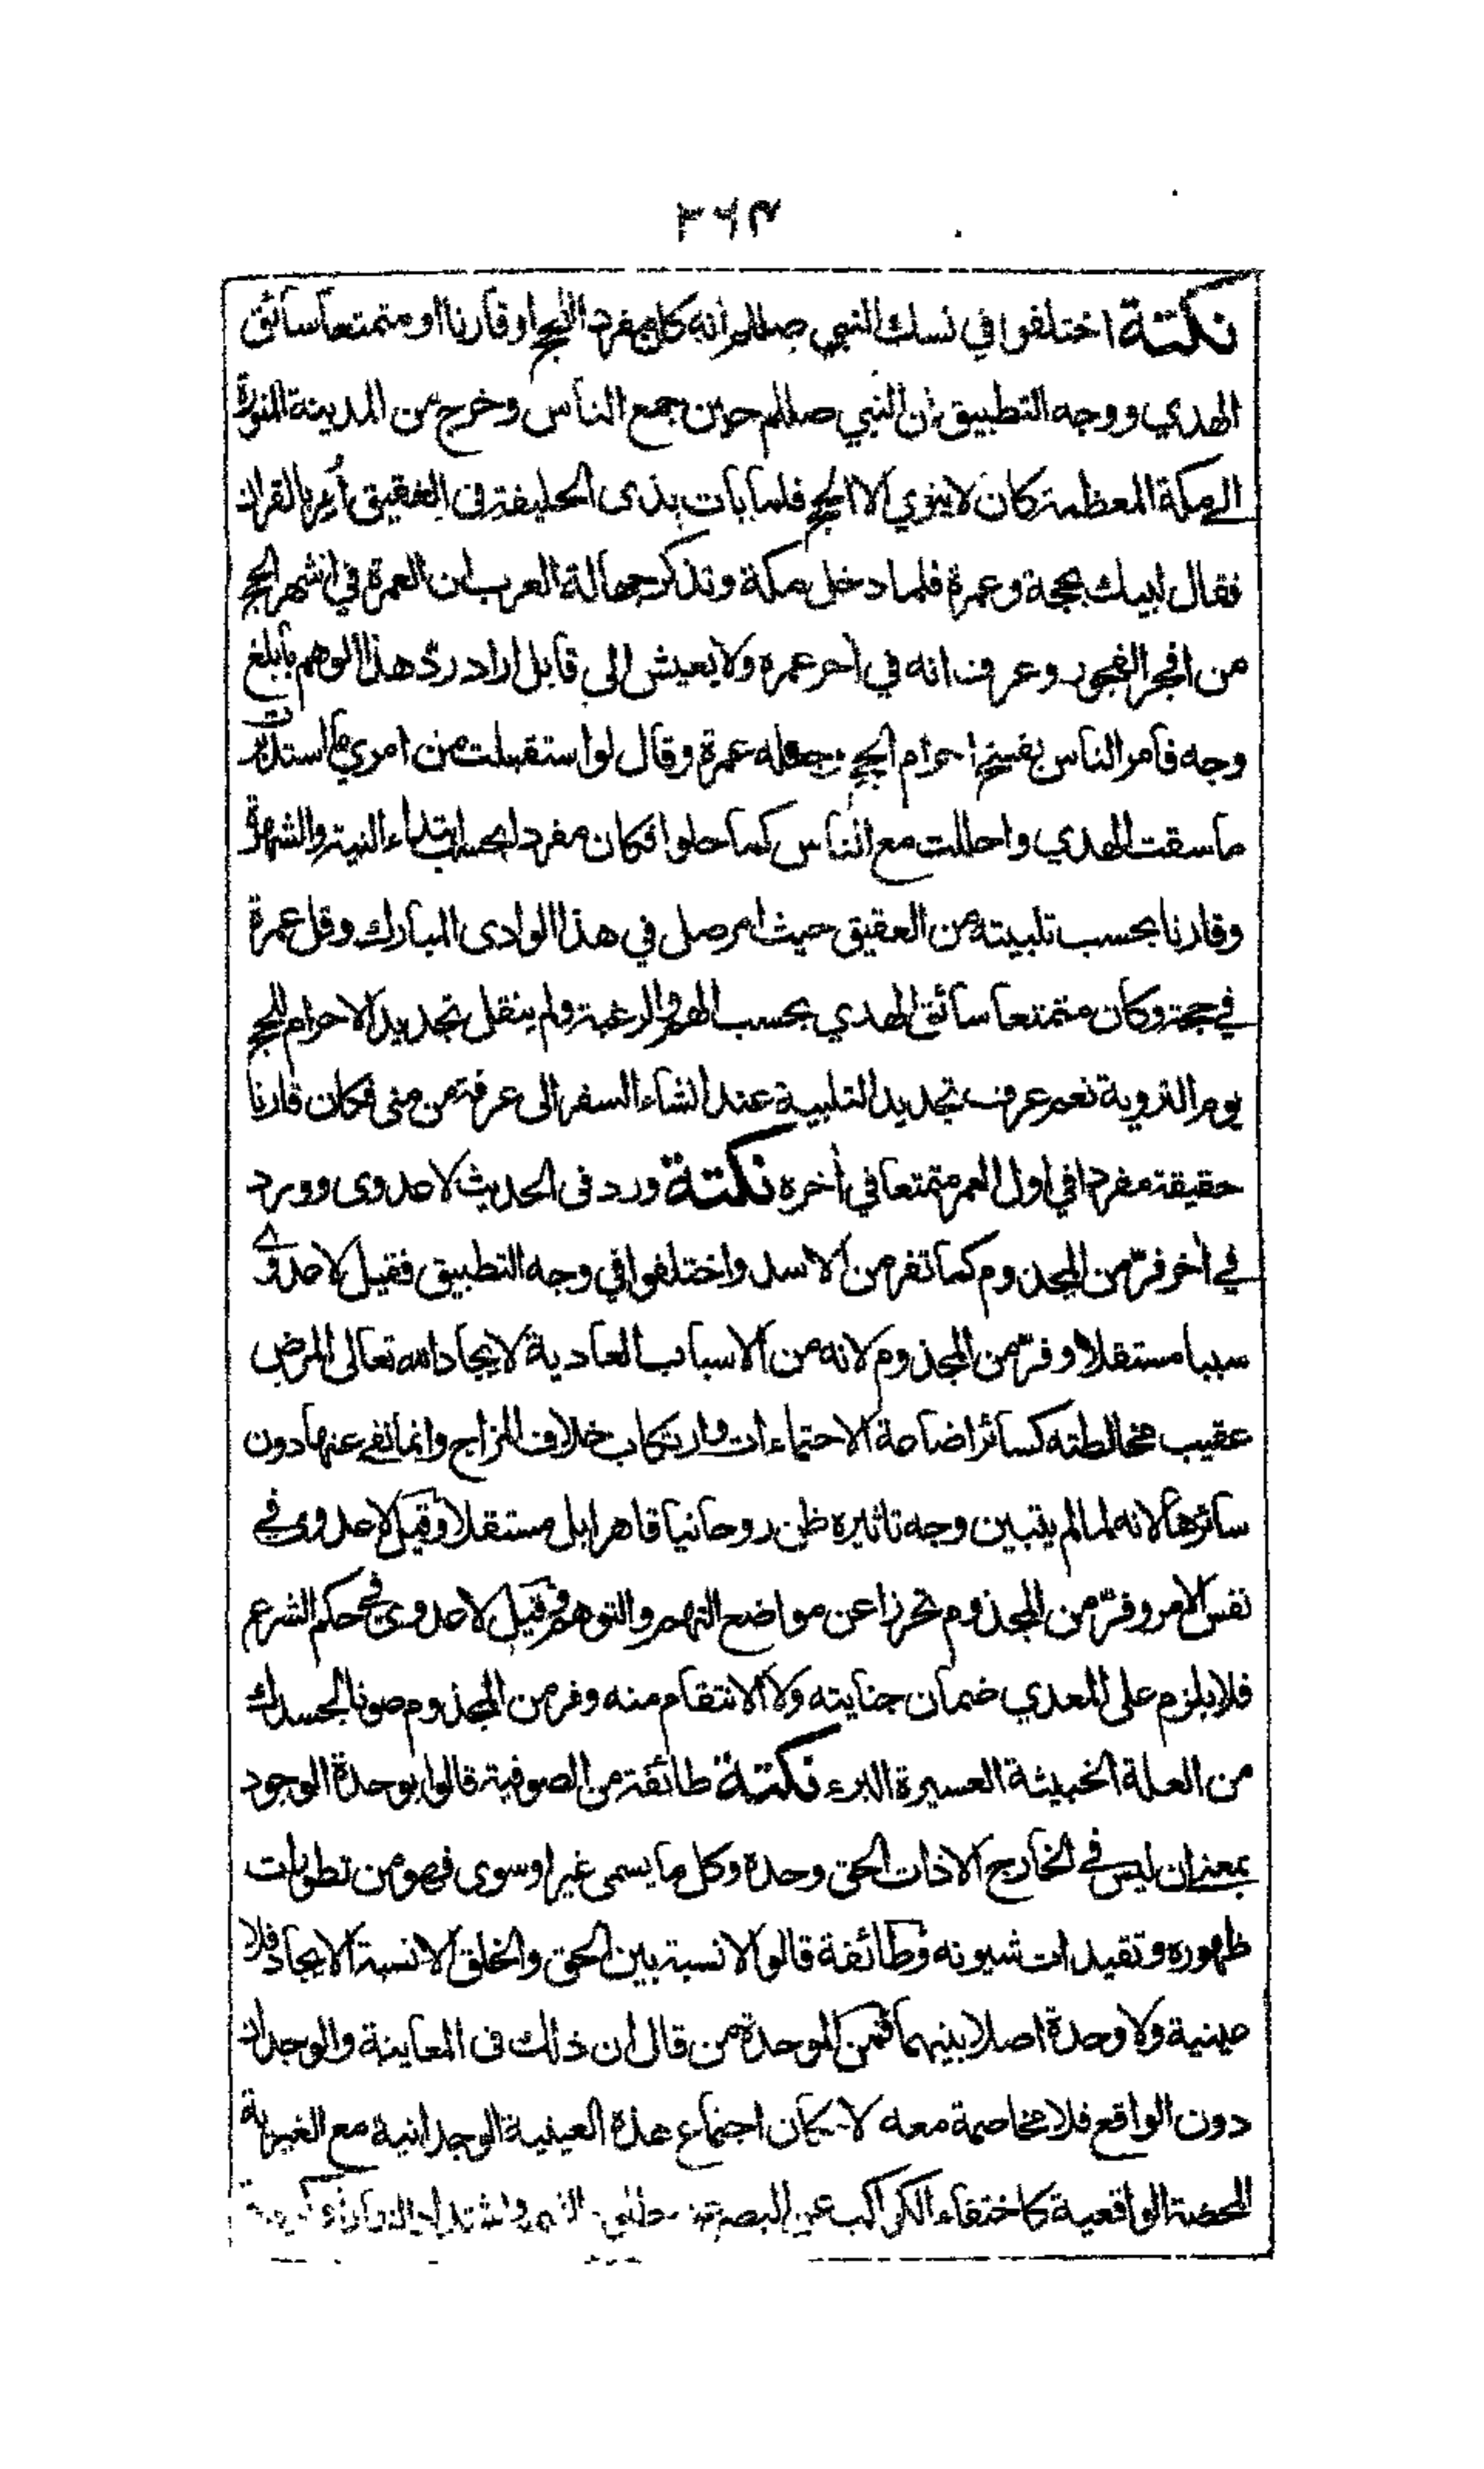 ٣٦٣
نكتة اختلفوا في نسك النبي صللم انه كان مفردا للحج او قارنا او متمتعا سائق
الهدي ووجه التطبيق ان النبي صللم حين جمع الناس وخرج من المدينة المنورة
الى مكة المعظمة كان لا ينوي الا الحج فلما بات بذى الحليفة فى العقيق أمر بالقران
فقال لبيك بحجة وعمرة فلما دخل مكة وتذكر جهالة العرب ان العمرة في اشهر الحج
من افجر الفجور وعرف انه في آخر عمره ولا يعيش الى قابل اراد ردّ هذا الوهم بابلغ
وجه فامر الناس بفسخ احرام الحج وجعله عمرة وقال لو استقبلت من امري ما استدبرت
ما سقت الهدي واحللت مع الناس كما حلوا فكان مفردا بحسب ابتداء النية والشهرة
وقارنا بحسب تلبيته من العقيق حيث امر صل في هذا الوادى المبارك وقل عمرة
في حجة وكان متمتعا سائق الهدي بحسب الهم والرغبة ولم ينقل تجديد الاحرام للحج
يوم التروية نعم عرف تجديد التلبية عند انشاء السفر الى عرفة من منى فكان قارنا
حقيقة مفردا في اول العمر متمتعا في آخره نكتة ورد فى الحديث لا عدوى وورد
في آخر فرّ من المجذوم كما تفر من الاسد واختلفوا في وجه التطبيق فقيل لا عدوى
سببا مستقلا وفرّ من المجذوم لانه من الاسباب العادية لايجاد الله تعالى المرض
عقيب مخالطته كسائر اضاعة الاحتماءات وارتكاب خلاف المزاج وانما نفي عنها دون
سائرها لانه لما لم يتبين وجه تاثيره ظن روحانيا قاهرا بل مستقلا وقيل لا عدوى في
نفس الامر وفرّ من المجذوم تحرزا عن مواضع التهم والتوهم وقيل لا عدوى في حكم الشرع
فلا يلزم على المعدي ضمان جنايته ولا الانتقام منه وفر من المجذوم صونا لجسدك
من العلة الخبيثة العسيرة البرء نكتة طائفة من الصوفية قالوا بوحدة الوجود
بمعنى ان ليس في الخارج الا ذات الحق وحده وكل ما يسمى غيرا وسوى فهو من تطورات
ظهوره وتقيدات شيونه وطائفة قالوا لا نسبة بين الحق والخلق الا نسبة الايجاد فلا
عينية ولا وحدة اصلا بينهما فمن الموحدة من قال ان ذلك فى المعاينة والوجدان
دون الواقع فلا مخاصمة معه لامكان اجتماع هذه العينية الوجدانية مع الغيرية
المحضة الواقعية كاختفاء الكواكب عن البصر